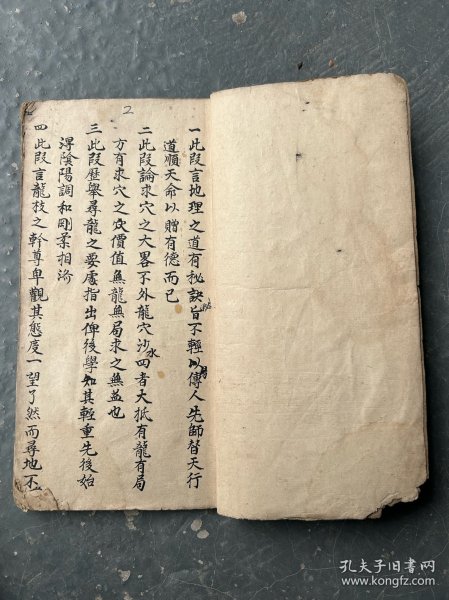 2
一此叚言地理之道有秘訣旨不輕以傳人先師替天行
道順天命以贈有德而已
二此叚論求穴之大畧不外龍穴沙水四者大抵有龍有局
方有求穴之價值無龍無局求之無益也
三此叚歷舉尋龍之要處指出俾後學如其輕重先後始
淂陰陽調和剛柔相済
四此叚言龍枝之幹尊卑觀其態度一望了然而尋地不
孔夫子旧书网
www.kongfz.com